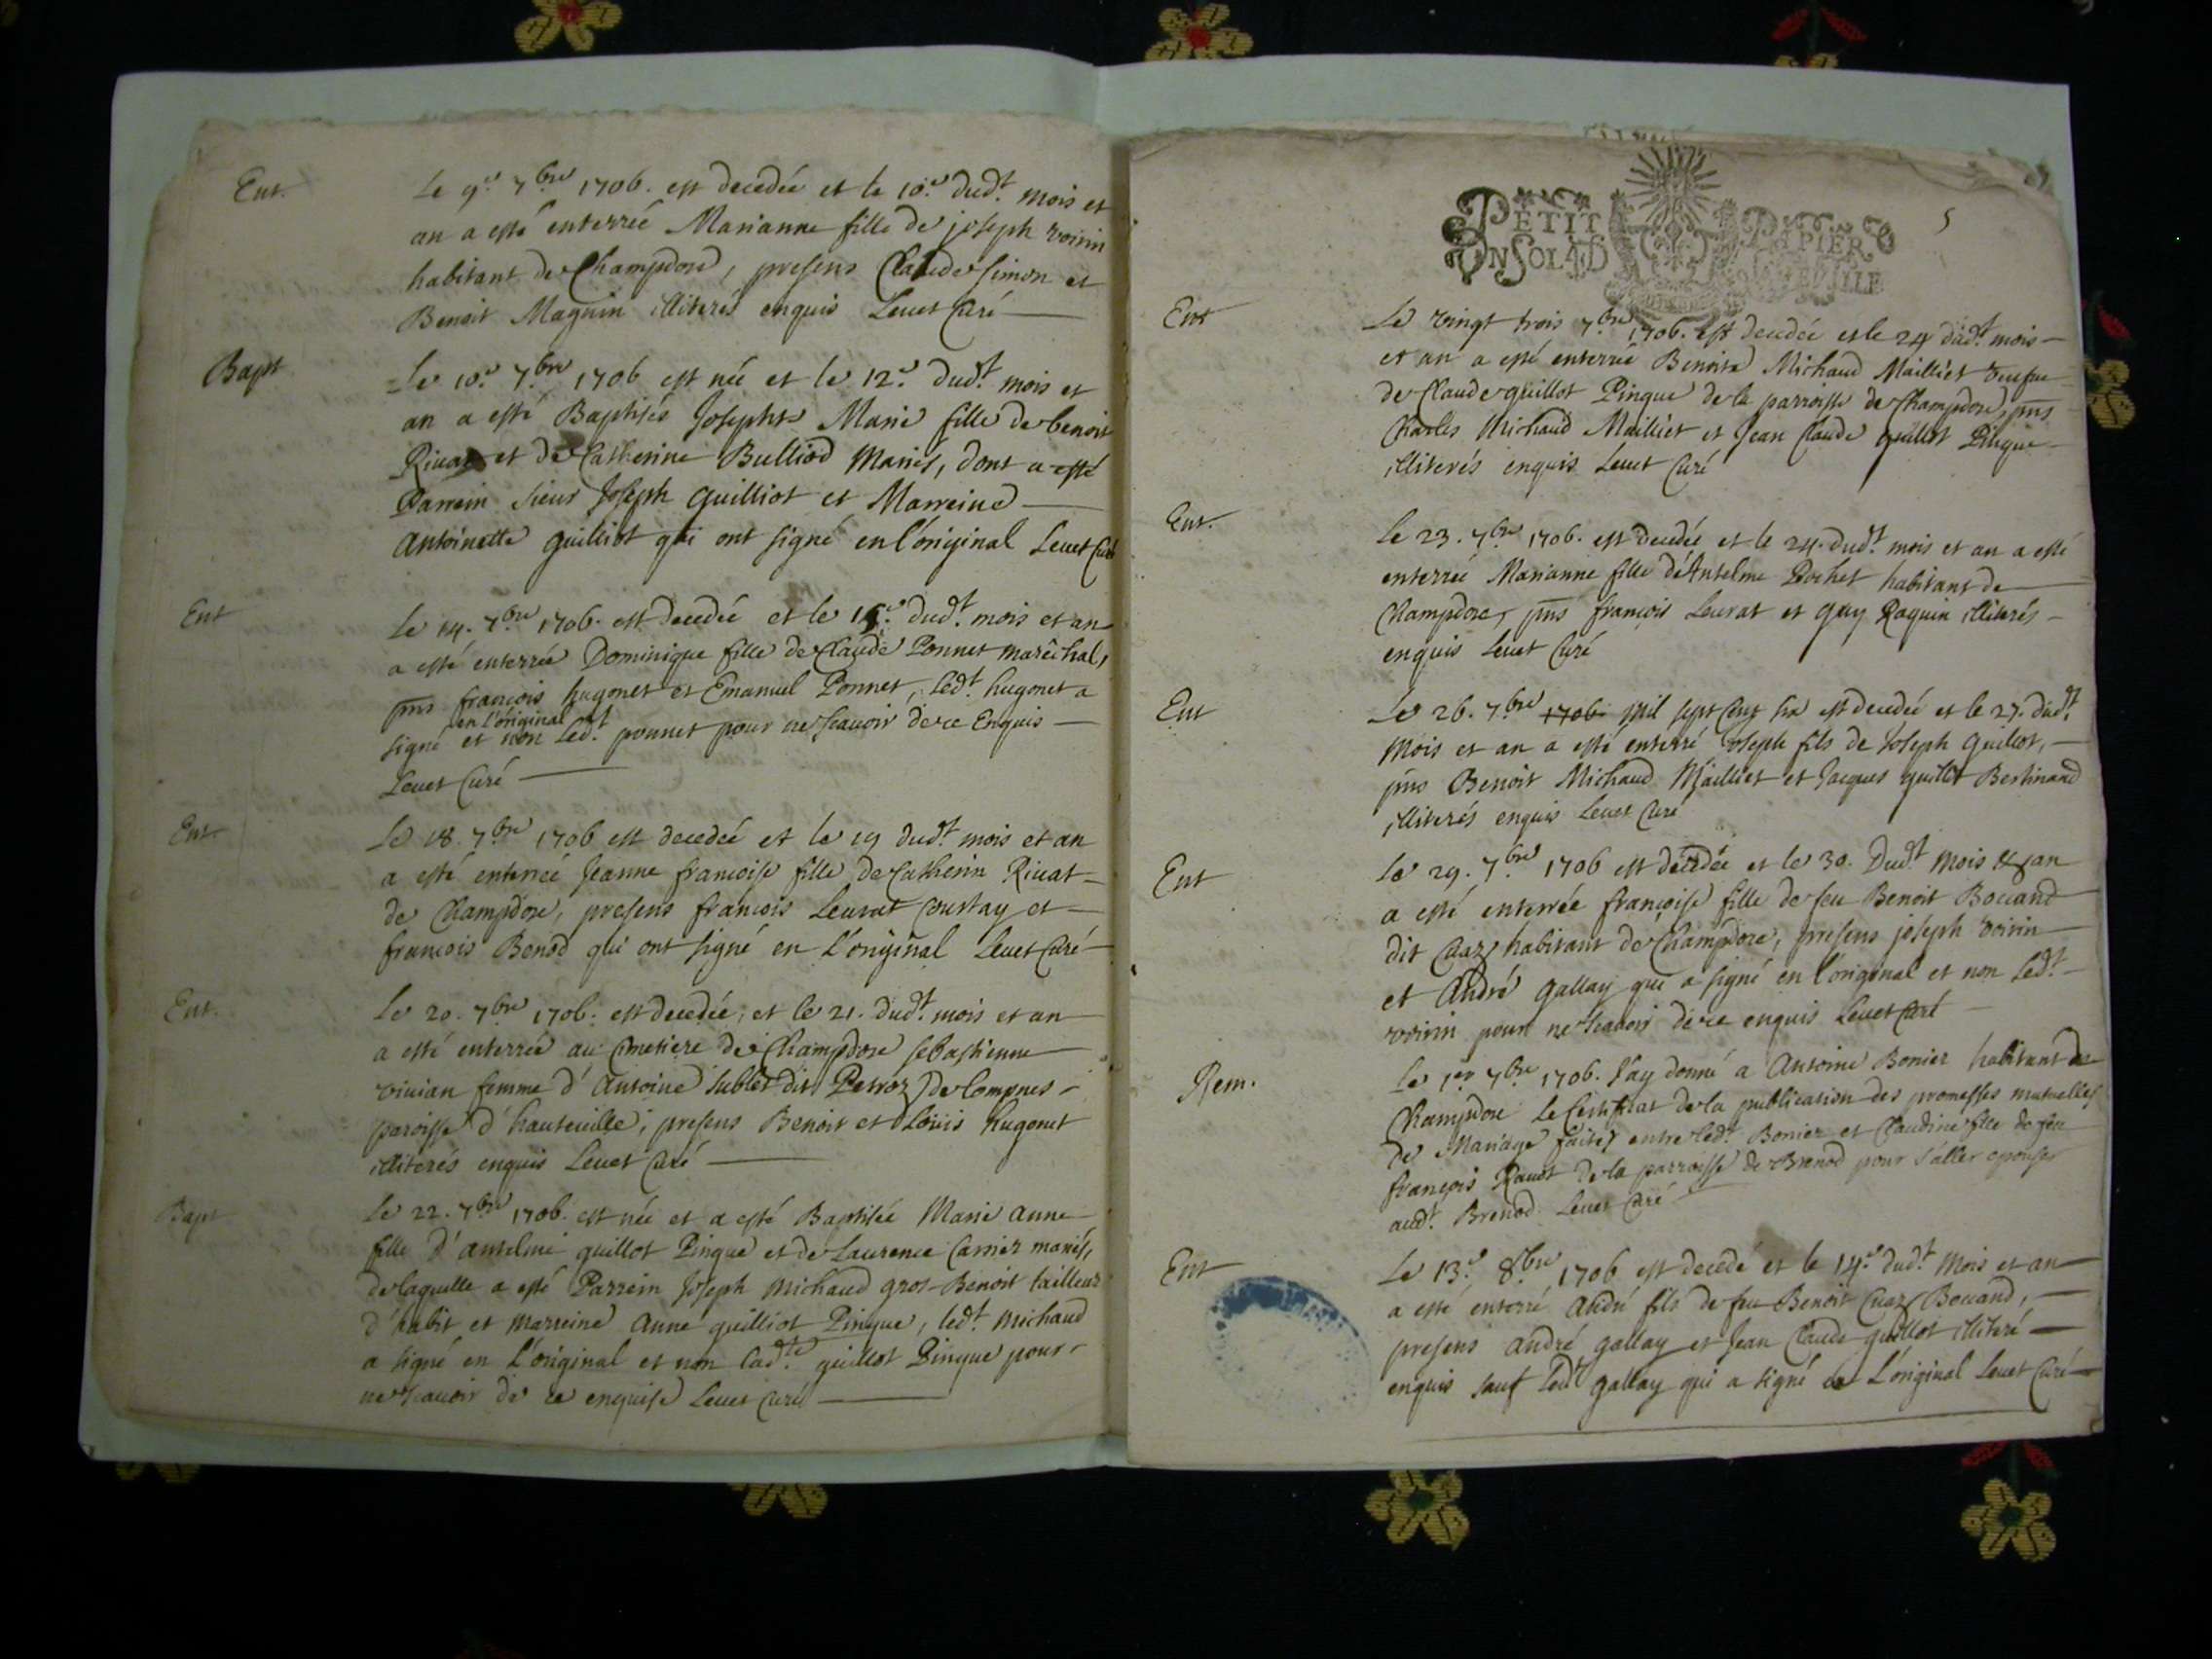 Ent.
Le 9.e 7.bre 1706. est decedée et le 10.e dud.t mois et
an a esté enterrée Marianne fille de joseph voirin
habitant de Champdore, presens Claude simon et
Benoit Maguin illiterés enquis Leuet Curé
Bapt
Le 10.e 7.bre 1706 est née et le 12.e dud.t mois et
an a esté Baptisés Josephte Marie fille de benoit
Riuat et de Catherine Bulliod Mariés, dont a esté
Parrein sieur Joseph Guilliot et Marreine
Antoinette guilliot qui ont signé en l'original Leuet Curé
Ent
Le 14. 7.bre 1706. est decedée et le 15.e dud.t mois et an
a esté enterrée Dominique fille de Claude Ponnet maréchal,
pns françois hugonet et Emanuel Ponnet, led.t hugonet a
en l'original
signé et non led.t ponnet pour ne scauoir de ce Enquis
Leuet Curé
Ent.
Le 18. 7.bre 1706 est decedeé et le 19 dud.t mois et an
a esté enterreé Jeanne francoise fille de Catherin Riuat
de Champdore, presens francois Leurat Coustay et
francois Benod qui ont signé en L'original Leuet Curé
Ent.
Le 20. 7.bre 1706. est decedée, et le 21. dud.t mois et an
a esté enterrée au Cimetiere de Champdore sebastienne
viuian femme d'Antoine sublet dit Petroz de lompnes
paroisse d'hauteuille, presens Benoit et Loüis hugonet
illiterés enquis Leuet Curé
Bapt
Le 22. 7.bre 1706. est née et a esté Baptisée Marie anne
fille d'antelme guillot Pingue et de Laurence Carrier mariés,
de laquelle a esté Parrein Joseph Michaud gros-Benoit tailleur
d'habit et marreine anne guilliot Pingue, led.t Michaud
a signé en L'original et non lad.te guillot Pingue pour
ne scauoir de ce enquise Leuet Curé
PETIT PAPIER
UN SOL 4 D LA FEUILLE
5
Ent
Le vingt trois 7.bre 1706. est decedée et le 24 dud.t mois
et an a esté enterrée Benoite Michaud Mailliet veufue
de Claude guillot Pingue de la parroisse de Champdore, pns
Charles Michaud Mailliet et Jean Claude guillot Pingue
illiterés enquis Leuet Curé
Ent.
Le 23. 7.bre 1706. est decedée et le 24. dud.t mois et an a esté
enterrée Marianne fille d'Antelme Pochet habitant de
Champdore, pns françois Leurat et guy Raquin illiterés
enquis Leuet Curé
Ent
Le 26. 7.bre 1706. Mil sept Cent six est decedée et le 27. dud.t
mois et an a esté enterré Joseph fils de Joseph Guillot,
pns Benoit Michaud Mailliet et Jacques guillot Bertinand
illiterés enquis Leuet Curé
Ent
Le 29. 7.bre 1706 est decedée et le 30. Dud.t mois & an
a esté enterrée françoise fille de feu Benoit Bouand
dit Cuaz habitant de Champdore, presens joseph voirin
et André Gallay qui a signé en l'original et non led.t
voirin pour ne scauoir de ce enquis Leuet Curé
Rem.
Le 1.er 7.bre 1706. J'ay donné a Antoine Bonier habitant de
Champdore Le Certificat de la publication des promesses mutuelles
de Mariage faites entre led.t Bonier et Claudine fille de feu
françois Rauot de la parroisse de Brenod pour s'aller epouser
aud.t Brenod Leuet Curé
Ent
Le 13.e 8.bre 1706 est decedé et le 14.e dud.t mois et an
a esté enterré André fils de feu Benoit Cuaz Bouand,
presens André gallay et Jean Claude guillot illiteré
enquis sauf led.t gallay qui a signé en L'original Leuet Curé